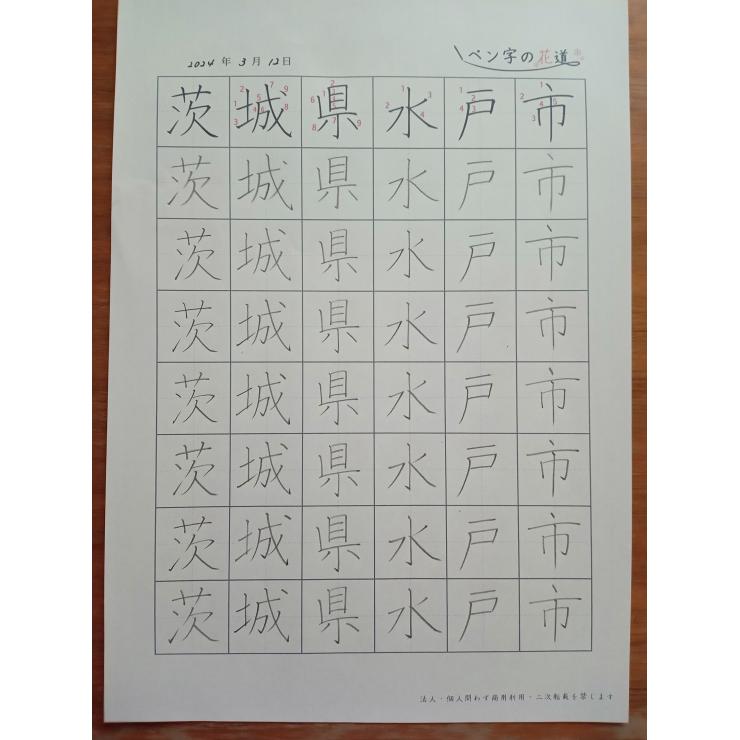 2024 年 3 月 12 日
ペン字の花道
茨城県水戸市
茨城県水戸市
茨城県水戸市
茨城県水戸市
茨城県水戸市
茨城県水戸市
茨城県水戸市
茨城県水戸市
法人・個人問わず商用利用・二次転載を禁じます